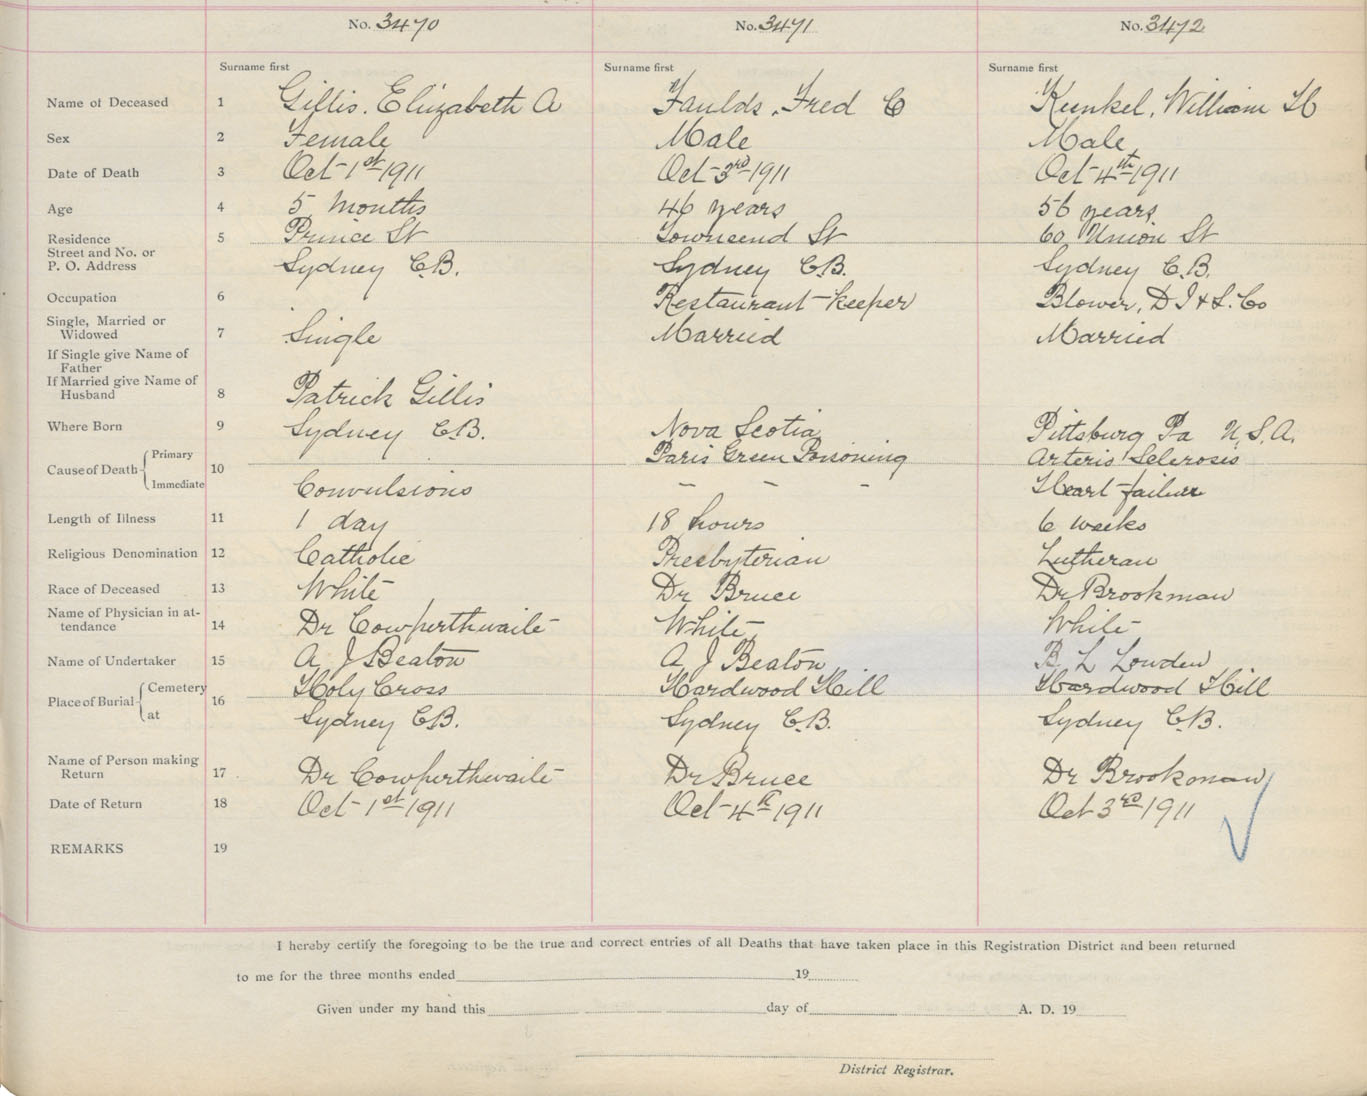 No. 3470 No. 3471 No. 3472
Surname first Surname first Surname first
Name of Deceased 1 Gillis. Elizabeth A Faulds, Fred C Kunkel, William H
Sex 2 Female Male Male
Date of Death 3 Oct 1st 1911 Oct 3rd 1911 Oct 4th 1911
Age 4 5 months 46 years 56 years
Residence 5 Prince St Townsend St 60 Union St
Street and No. or
P. O. Address Sydney C.B. Sydney C.B. Sydney C.B.
Occupation 6 Restaurant-keeper Blower, D I & S. Co
Single, Married or
Widowed 7 Single Married Married
If Single give Name of
Father
If Married give Name of
Husband 8 Patrick Gillis
Where Born 9 Sydney C.B. Nova Scotia Pittsburg Pa U.S.A.
Cause of Death 10 Primary Paris Green Poisoning Arteris Sclerosis
Immediate Convulsions - - - Heart failure
Length of Illness 11 1 day 18 hours 6 weeks
Religious Denomination 12 Catholic Presbyterian Lutheran
Race of Deceased 13 White Dr Bruce Dr Brookman
Name of Physician in at-
tendance 14 Dr Cowperthwaite White White
Name of Undertaker 15 A J Beaton A J Beaton B L Lowden
Place of Burial 16 Cemetery Holy Cross Hardwood Hill Hardwood Hill
at Sydney C.B. Sydney C.B. Sydney C.B.
Name of Person making
Return 17 Dr Cowperthwaite Dr Bruce Dr Brookman
Date of Return 18 Oct 1st 1911 Oct 4th 1911 Oct 3rd 1911
REMARKS 19
I hereby certify the foregoing to be the true and correct entries of all Deaths that have taken place in this Registration District and been returned
to me for the three months ended 19
Given under my hand this day of A. D. 19
District Registrar.